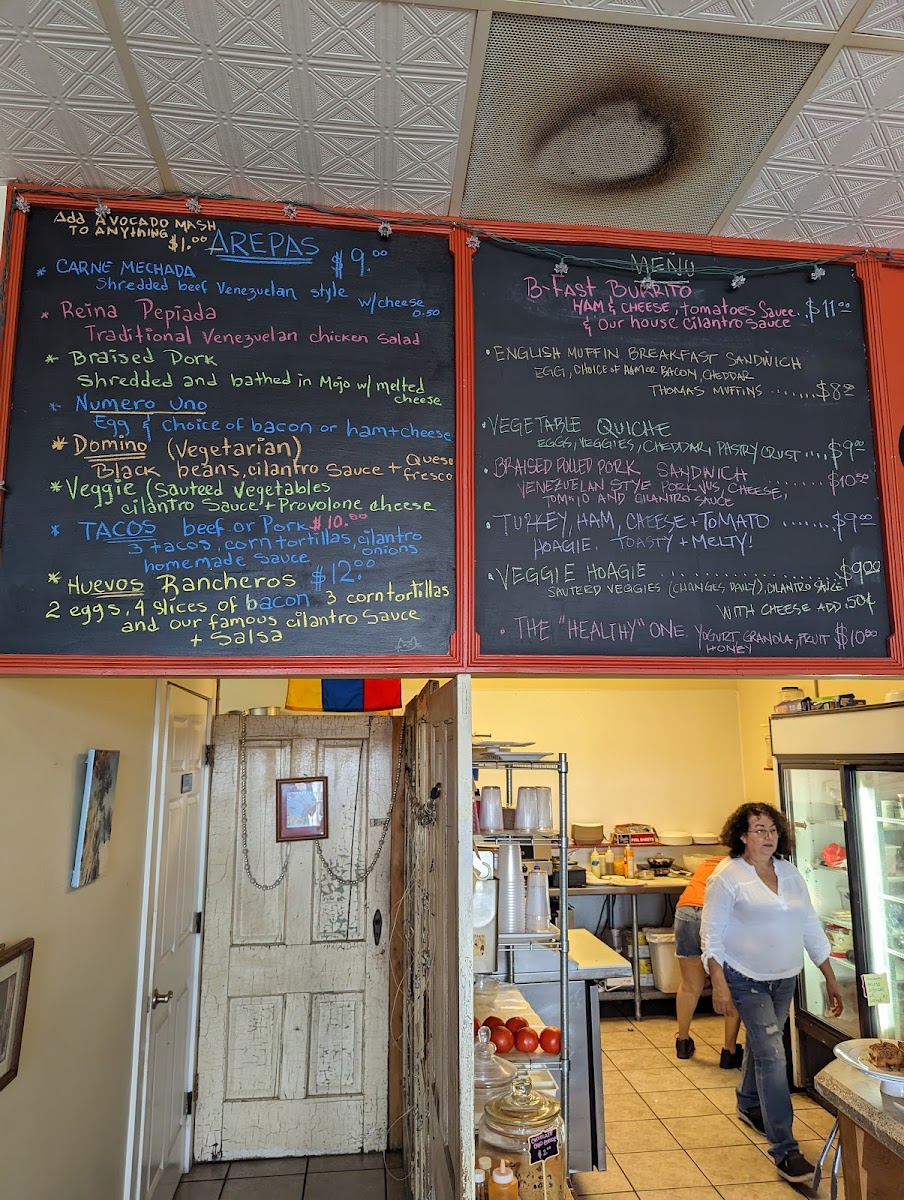 Add AVOCADO MASH
TO ANYTHING $1.00
AREPAS $9.00
* CARNE MECHADA
Shredded beef Venezuelan style w/cheese 0.50
* Reina Pepiada
Traditional Venezuelan chicken Salad
* Braised Pork
Shredded and bathed in Mojo w/ melted
cheese
* Numero Uno
Egg & choice of bacon or ham + cheese
* Domino (Vegetarian)
Black beans, cilantro Sauce + Queso
fresco
* Veggie (Sauteed Vegetables
cilantro Sauce + Provolone cheese
* TACOS beef or Pork $10.00
3 tacos, corn tortillas, cilantro
onions
homemade Sauce
* Huevos Rancheros $12.00
2 eggs, 4 slices of bacon 3 corn tortillas
and our famous cilantro Sauce
+ Salsa
MEÑU
B-FAST BURRITO
HAM & CHEESE, TOMATOES SAUCE . $11.00
& OUR HOUSE CILANTRO SAUCE
• ENGLISH MUFFIN BREAKFAST SANDWICH
EGG, CHOICE OF HAM OR BACON, CHEDDAR
THOMAS MUFFINS ...... $8.50
• VEGETABLE QUICHE
EGGS, VEGGIES, CHEDDAR, PASTRY CRUST ... $9.00
• BRAISED PULLED PORK SANDWICH
VENEZUELAN STYE PORK JUS, CHEESE, $10.50
TOMATO AND CILANTRO SAUCE
• TURKEY, HAM, CHEESE + TOMATO ...... $9.00
HOAGIE. TOASTY + MELTY!
• VEGGIE HOAGIE .................. $9.00
SAUTEED VEGGIES (CHANGES DAILY), CILANTRO SAUCE
WITH CHEESE ADD .50¢
• THE "HEALTHY" ONE. YOGURT, GRANOLA, FRUIT $10.00
HONEY